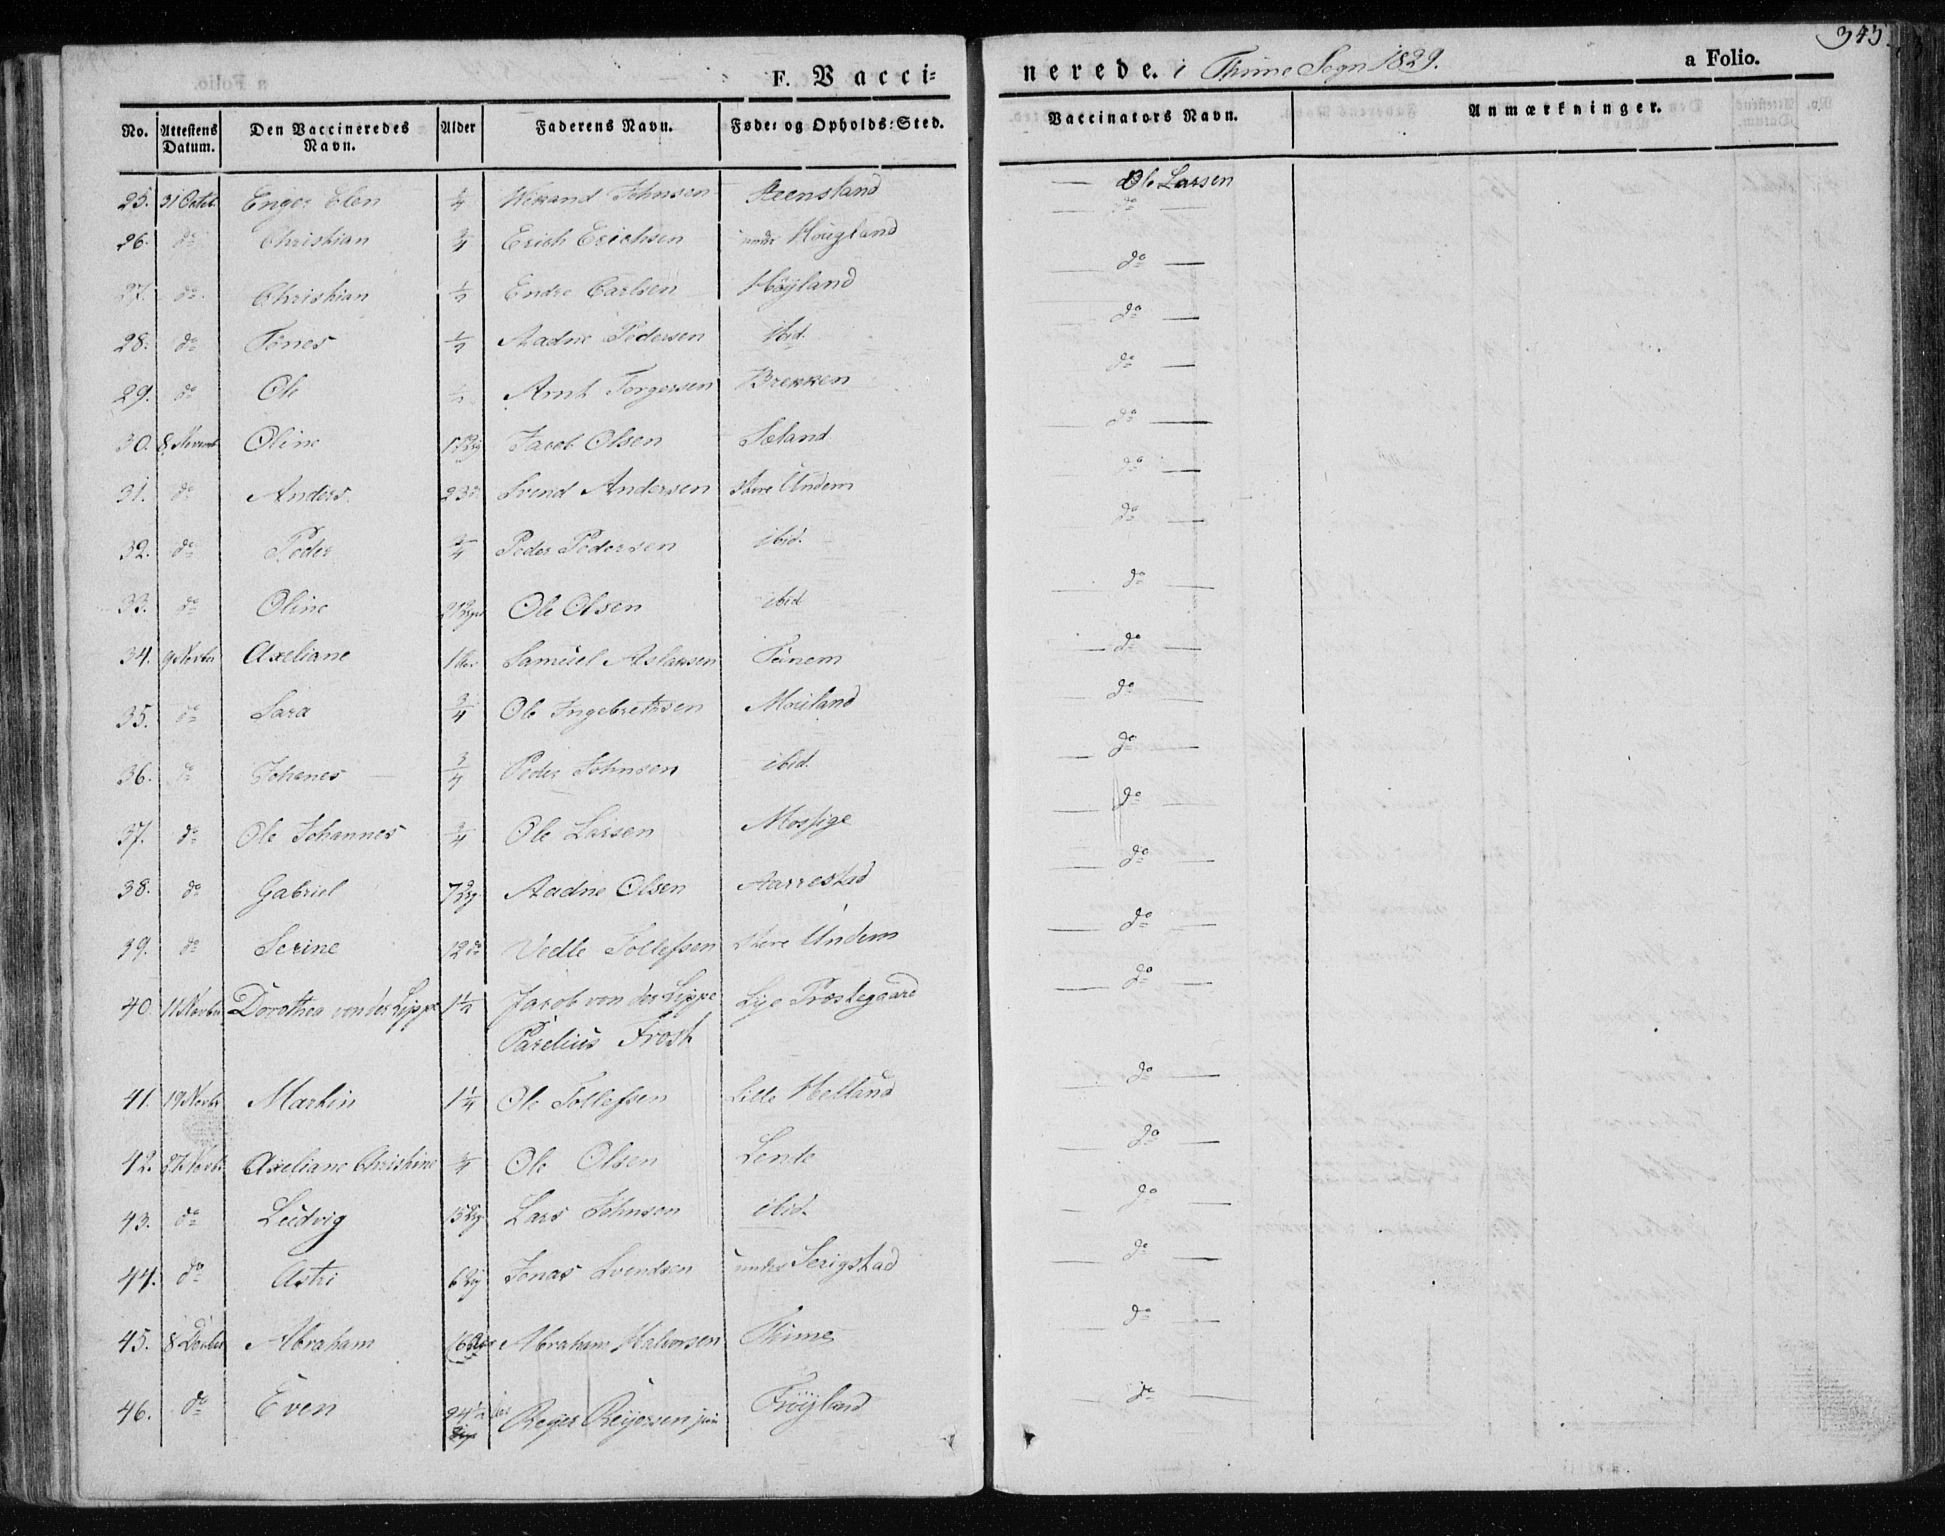 343.
F. Vacci=
nerede. i Thime Sogn 1829.
a Folio.
No. Attestens Datum. Den Vaccineredes Navn. Alder Faderens Navn. Føde= og Opholds=Sted. Vaccinators Navn. Anmærkninger.
25. 31 Octob. Enger Elen Johnsen Ole Larsen
26. do Christian 3/4 Erich Erichsen under Hougland do
27. do Christian 1/2 Endre Carlsen Høyland do
28. do Tønes 1/2 Aadne Pedersen ibid. do
29. do Ole 1/2 Arnt Torgersen Brekken do
30. 8 Oline Jacob Olsen Sæland do
31. do Anders Svend Andersen store Undem do
32. do Peder 3/4 Peder Pedersen ibid. do
33. do Oline Ole Olsen ibid do
34. 9 Novbr Axeliane Samuel Aslaksen Tunem do
35. do Sara 3/4 Ole Ingebretsen Mouland do
36. do Johanes 3/4 Peder Johnsen ibid. do
37. do Ole Johannes 3/4 Ole Larsen Mossige do
38. do Gabriel Aadne Olsen Aarrestad do
39. do Serine 12 do Vedle Tollefsen store Undem do
40. 11 Novbr Dorothea von der Lippe 1 1/2 Jacob von der Lippe Lye Præstegaard do
Parelius Frost
41. 19 Novbr Martin 1 1/4 Ole Tollefsen Lille Helland do
42. Novbr Axeliane Christine 3/4 Ole Olsen Lende do
43. do Ludvig Lars Johnsen ibid. do
44. do Astri Jonas Svendsen under Serigstad do
45. 8 Decbr Abraham Abraham Halvorsen Thime do
46. do Even Reyersen jun Frøyland do